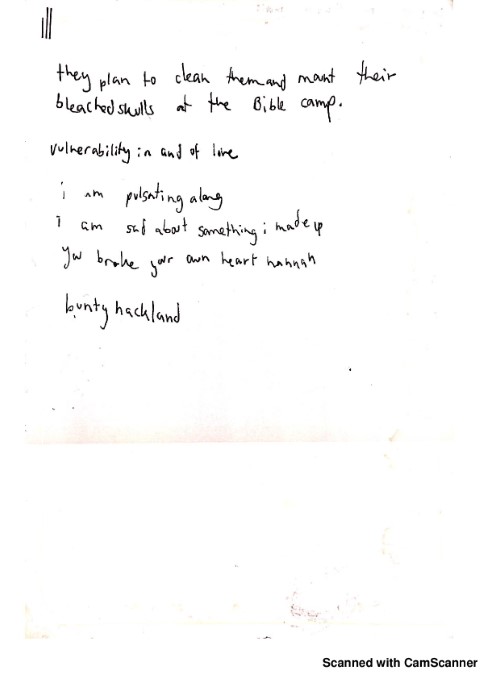 they plan to clean them and mount their
bleached skulls at the Bible camp.
vulnerability in and of love
i am pulsating along
i am sad about something i made up
You broke your own heart hannah
bunty hackland
Scanned with CamScanner